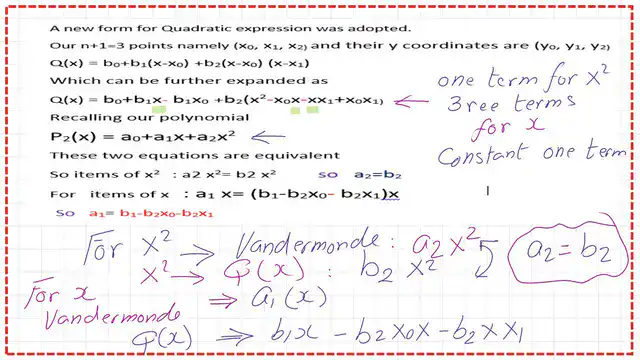 A new form for Quadratic expression was adopted.
Our n+1=3 points namely (x₀, x₁, x₂) and their y coordinates are (y₀, y₁, y₂)
Q(x) = b₀+b₁(x-x₀) +b₂(x-x₀) (x-x₁)
Which can be further expanded as
Q(x) = b₀+b₁x- b₁x₀ +b₂(x²-x₀x-xx₁+x₀x₁)
Recalling our polynomial
P₂(x) = a₀+a₁x+a₂x²
These two equations are equivalent
So items of x² : a2 x²= b2 x² so a₂=b₂
For items of x : a₁ x= (b₁-b₂x₀- b₂x₁)x
So a₁= b₁-b₂x₀-b₂x₁
one term for x²
3ree terms
for x
Constant one term
For x² → Vandermonde : a₂x²
x² → Q(x) : b₂ x²
a₂ = b₂
For x
Vandermonde ⇒ a₁(x)
Q(x) ⇒ b₁x - b₂x₀x - b₂xx₁